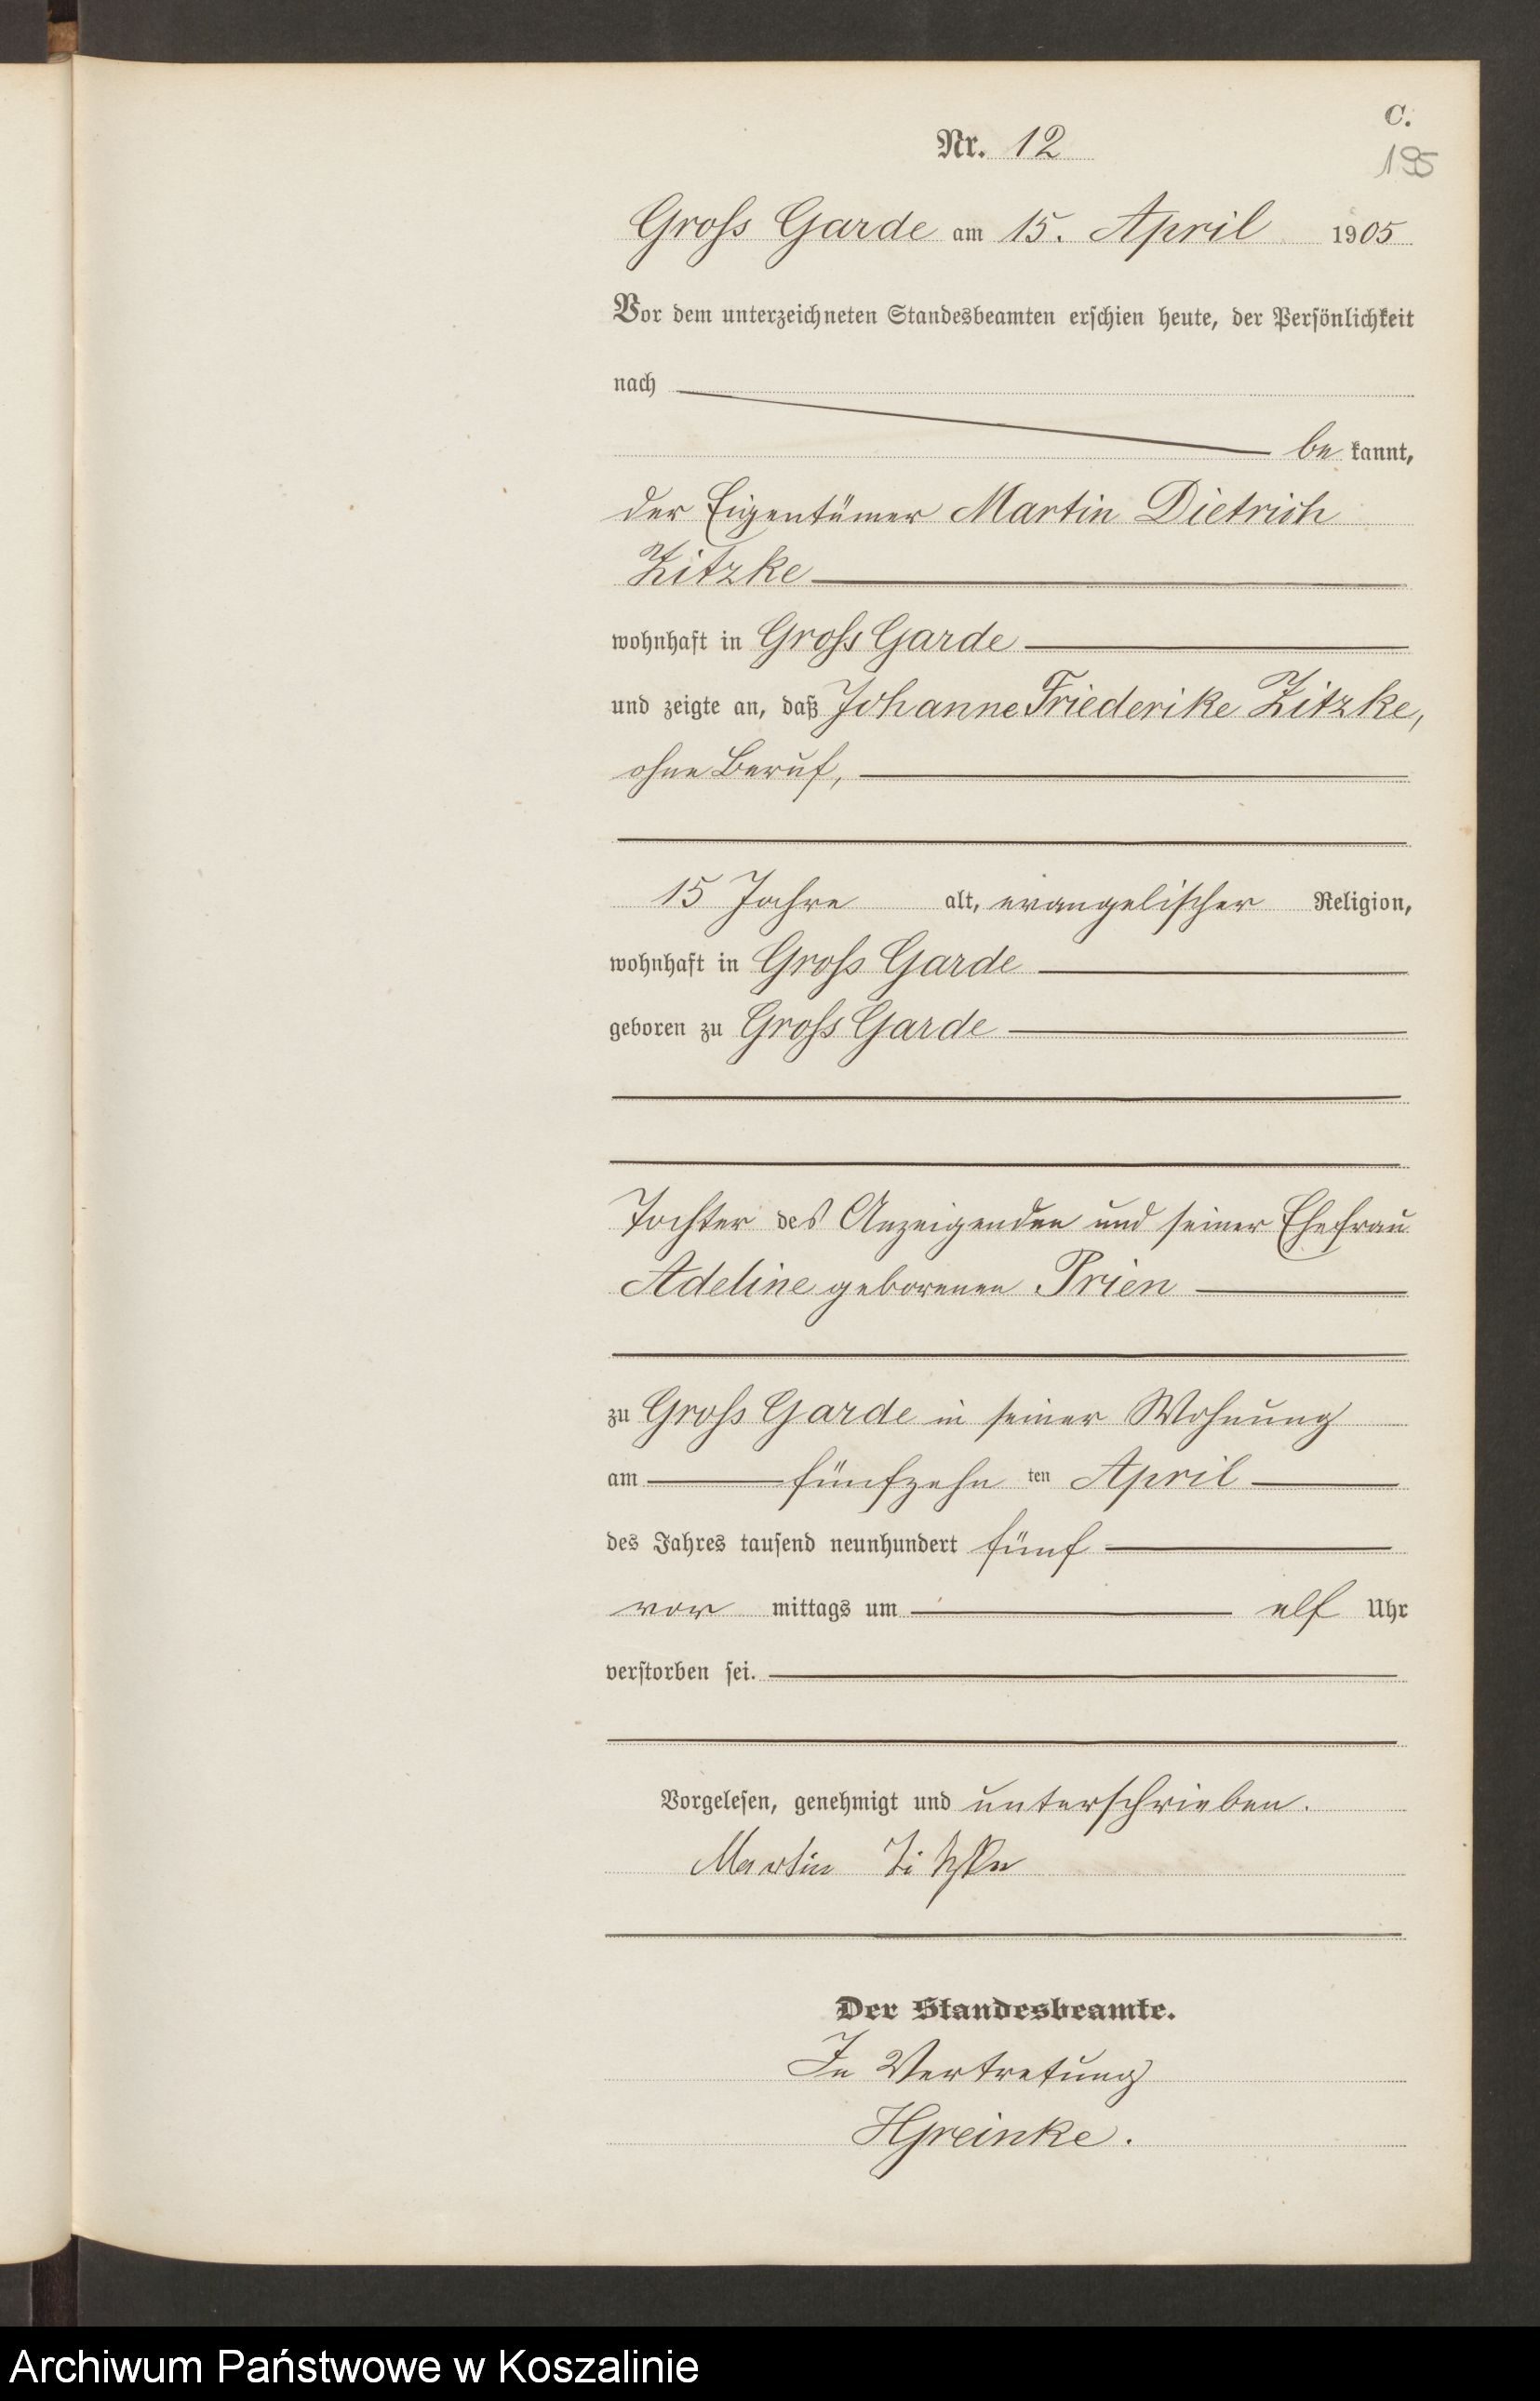 C.
Nr. 12
195
Gross Garde am 15. April 1905
Vor dem unterzeichneten Standesbeamten erschien heute, der Persönlichkeit
nach
be kannt,
der Eigentümer Martin Dietrich
Zitzke
wohnhaft in Gross Garde
und zeigte an, daß Johanne Friederike Zitzke,
ohne Beruf,
15 Jahre alt, evangelischer Religion,
wohnhaft in Gross Garde
geboren zu Gross Garde
Tochter des Anzeigenden und seiner Ehefrau
Adeline geborenen Prien
zu Gross Garde in seiner Wohnung
am fünfzehn ten April
des Jahres tausend neunhundert fünf
vor mittags um elf Uhr
verstorben sei.
Vorgelesen, genehmigt und unterschrieben.
Martin Zitzke
Der Standesbeamte.
In Vertretung
HGreinke.
Archiwum Państwowe w Koszalinie